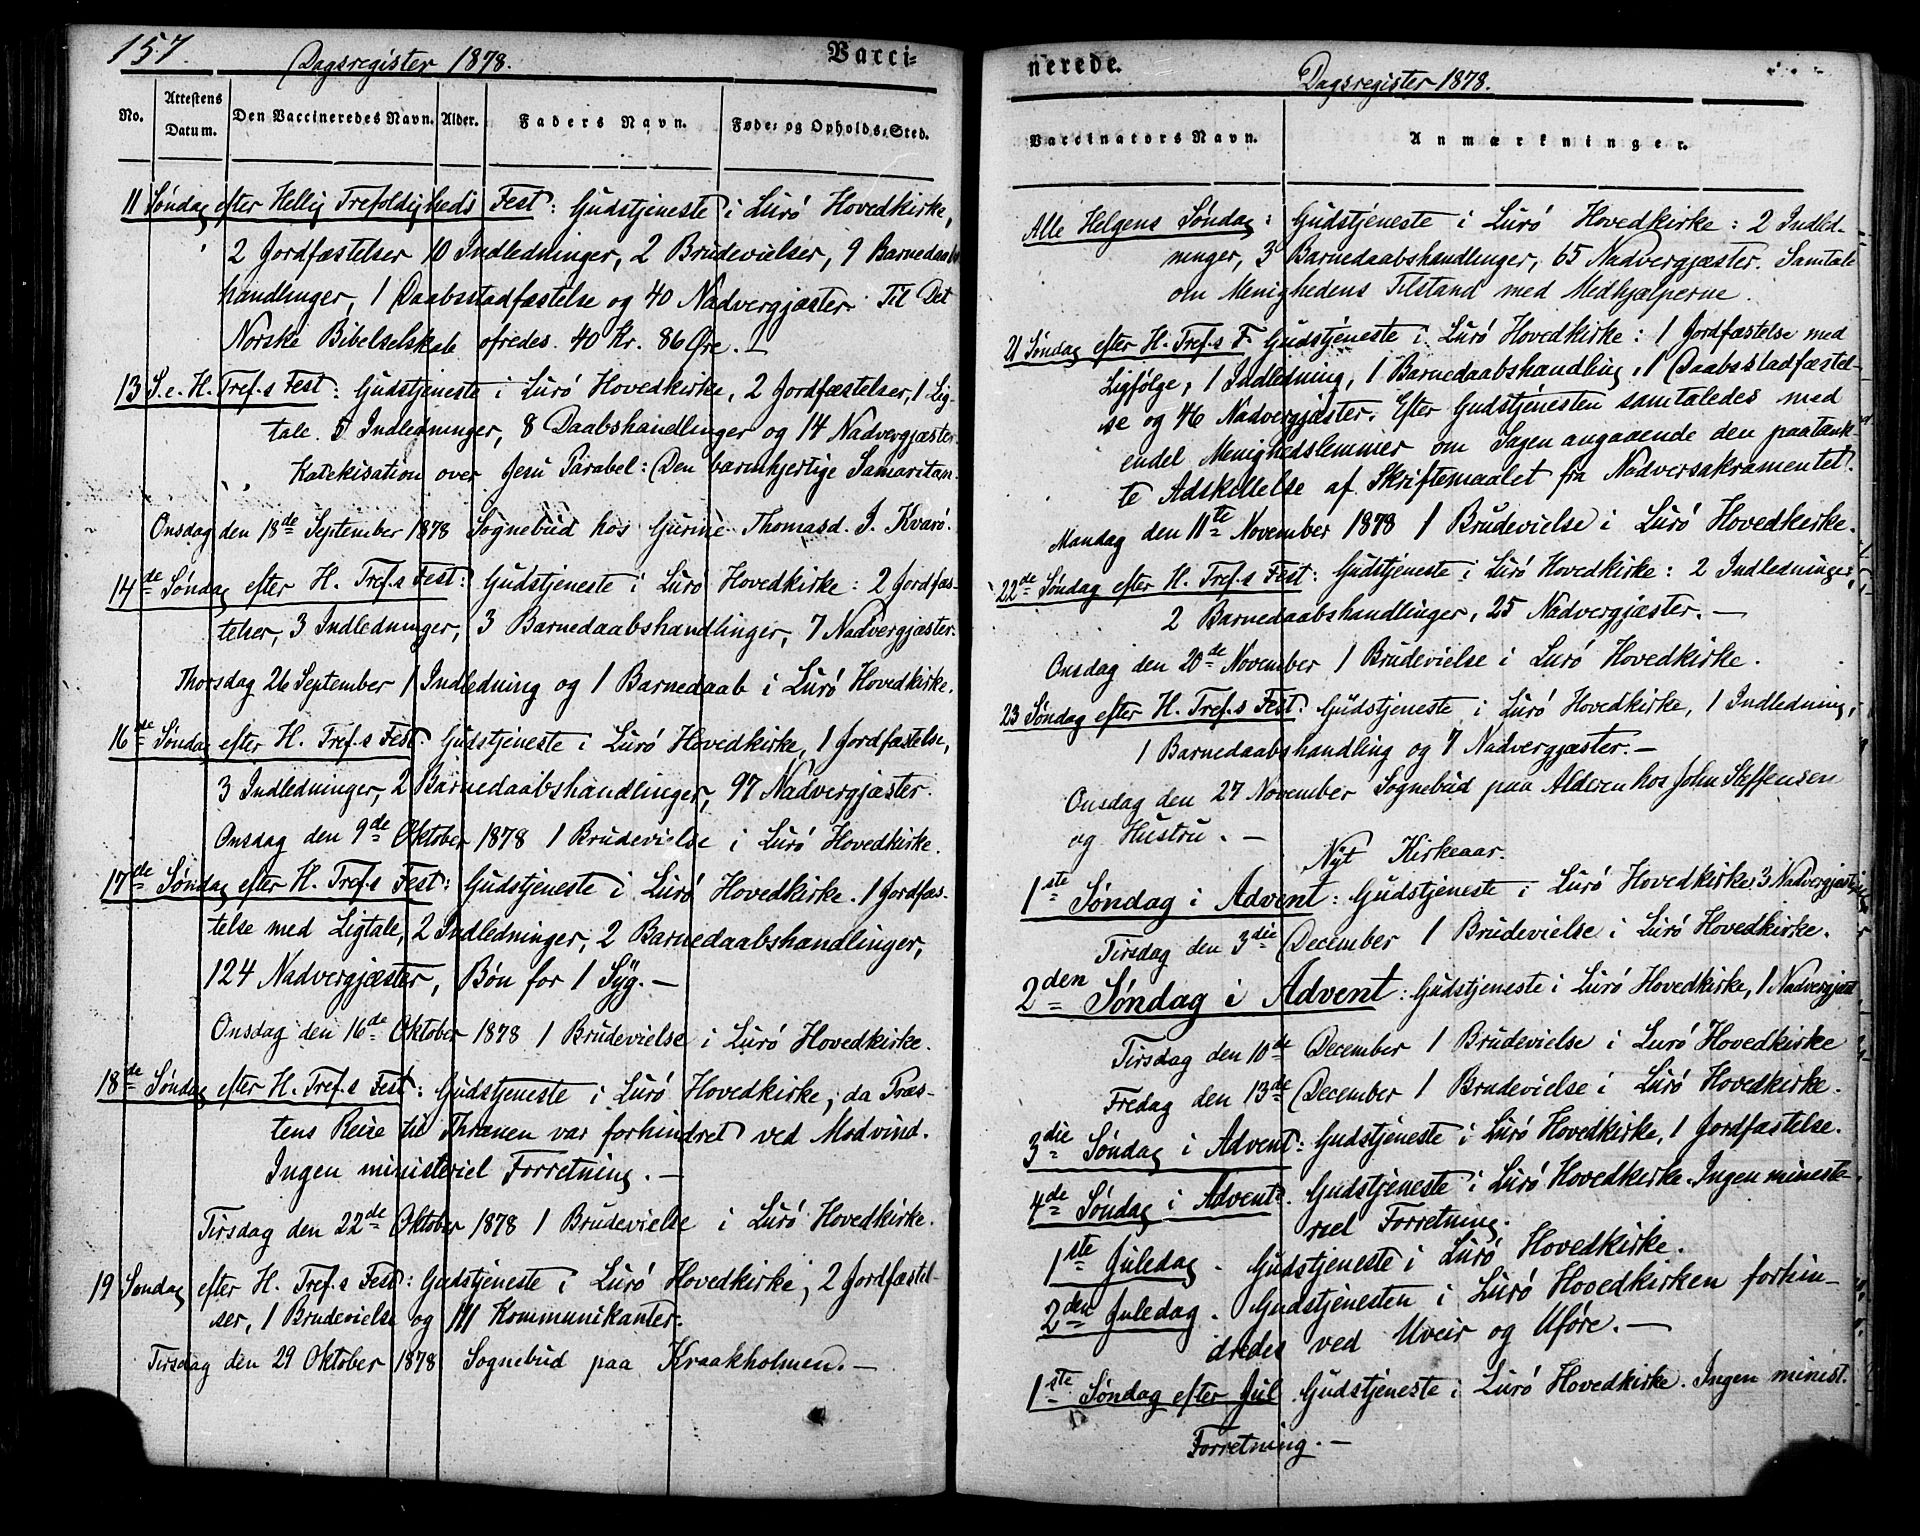 157.
Dagsregister 1878.
Vacci-
No.
Attestens Datum.
Den Vaccineredes Navn.
Alder.
Faders Navn.
Føde- og Opholds-Sted.
11 Søndag efter Hellig Trefoldigheds Fest: Gudstjeneste i Lurö Hovedkirke,
2 Jordfæstelser 10 Indledninger, 2 Brudevielser, 9 Barnedaabs
handlinger, 1 Daabsstadfæstelse og 40 Nadvergjæster. Til Det
Norske Bibelselskab ofredes 40 Kr. 86 Øre. —
13 S. e. H. Tref.s Fest: Gudstjeneste i Lurö Hovedkirke, 2 Jordfæstelser, 1 Lig-
tale. 5 Indledninger, 8 Daabshandlinger og 14 Nadvergjæster.
Katekisation over Jesu Parabel: Den barmhjertige Samaritan.
Onsdag den 18de September 1878 Sognebud hos Gurine Thomasd. I. Kvarö.
14de Søndag efter H. Tref.s Fest: Gudstjeneste i Lurö Hovedkirke: 2 Jordfæs-
telser, 3 Indledninger, 3 Barnedaabshandlinger, 7 Nadvergjæster.
Thorsdag 26 September 1 Indledning og 1 Barnedaab i Lurö Hovedkirke.
16de Søndag efter H. Tref.s Fest. Gudstjeneste i Lurö Hovedkirke, 1 Jordfæstelse,
3 Indledninger, 2 Barnedaabshandlinger, 97 Nadvergjæster.
Onsdag den 9de Oktober 1878 1 Brudevielse i Lurö Hovedkirke.
17de Søndag efter H. Tref.s Fest: Gudstjeneste i Lurö Hovedkirke. 1 Jordfæs-
telse med Ligtale, 2 Indledninger, 2 Barnedaabshandlinger,
124 Nadvergjæster, Bön for 1 Syg. —
Onsdag den 16de Oktober 1878 1 Brudevielse i Lurö Hovedkirke.
18de Søndag efter H. Tref.s Fest: Gudstjeneste i Lurö Hovedkirke, da Præs-
tens Reise til Thrænen var forhindret ved Modvind.
Ingen ministeriel Forretning. —
Tirsdag den 22de Oktober 1878 1 Brudevielse i Lurö Hovedkirke.
19 Søndag efter H. Tref.s Fest: Gudstjeneste i Lurö Hovedkirke, 2 Jordfæstel-
ser, 1 Brudevielse og 111 Kommunikanter.
Tirsdag den 29 Oktober 1878 Sognebud paa Kraakholmen. —
nerede.
Dagsregister 1878.
Vaccinators Navn.
Anmærkninger.
Alle Helgens Søndag: Gudstjeneste i Lurö Hovedkirke: 2 Indled-
ninger, 3 Barnedaabshandlinger, 65 Nadvergjæster. Samtale
om Menighedens Tilstand med Medhjælperne.
21 Søndag efter H. Tref.s F. Gudstjeneste i Lurö Hovedkirke: 1 Jordfæstelse med
Ligfölge, 1 Indledning, 1 Barnedaabshandling, 1 Daabsstadfæstel-
se og 46 Nadvergjæster. Efter Gudstjenesten samtaledes med
endel Menighedslemmer om Sagen angaaende den paatænk-
te Adskillelse af Skriftemaalet fra Nadversakramentet.
Mandag den 11te November 1878 1 Brudevielse i Lurö Hovedkirke.
22de Søndag efter H. Tref.s Fest: Gudstjeneste i Lurö Hovedkirke: 2 Indledninger,
2 Barnedaabshandlinger, 25 Nadvergjæster. —
Onsdag den 20de November 1 Brudevielse i Lurö Hovedkirke.
23 Søndag efter H. Tref.s Fest. Gudstjeneste i Lurö Hovedkirke, 1 Indledning,
1 Barnedaabshandling og 7 Nadvergjæster. —
Onsdag den 27 November Sognebud paa Alderen hos John Steffensen
og Hustru. —
Nyt Kirkeaar.
1ste Søndag i Advent: Gudstjeneste i Lurö Hovedkirke 3 Nadvergjæster
Tirsdag den 3die December 1 Brudevielse i Lurö Hovedkirke.
2den Søndag i Advent: Gudstjeneste i Lurö Hovedkirke, 1 Nadvergjæst
Tirsdag den 10de December 1 Brudevielse i Lurö Hovedkirke
Fredag den 13de December 1 Brudevielse i Lurö Hovedkirke.
3die Søndag i Advent: Gudstjeneste i Lurö Hovedkirke, 1 Jordfæstelse.
4de Søndag i Advent. Gudstjeneste i Lurö Hovedkirke. Ingen ministe-
riel Forretning.
1ste Juledag. Gudstjeneste i Lurö Hovedkirke.
2den Juledag. Gudstjenesten i Lurö Hovedkirken forhin-
dredes ved Uveir og Uföre. —
1ste Søndag efter Jul. Gudstjeneste i Lurö Hovedkirke. Ingen minist.
Forretning. —